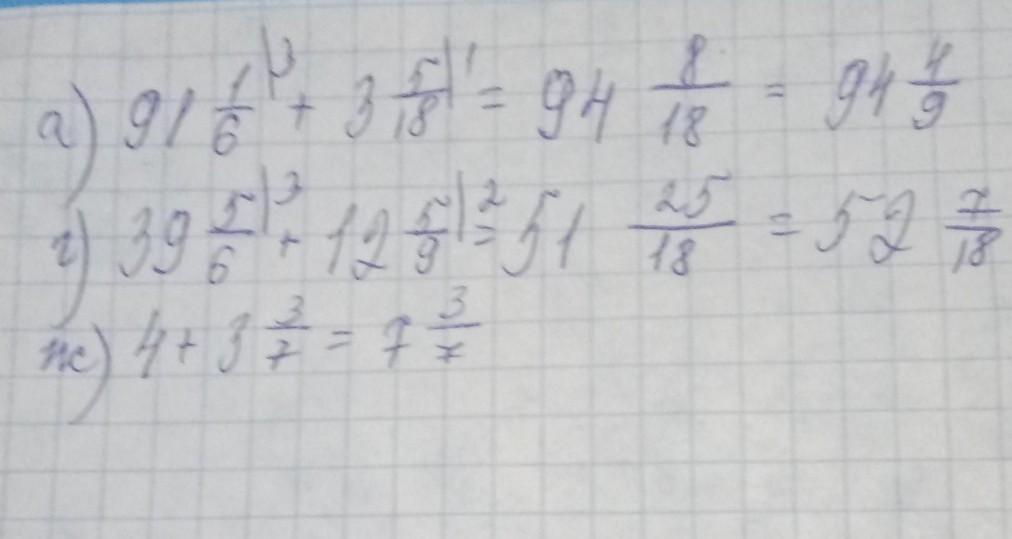 а) 91 1/6|3 + 3 5/18|1 = 94 8/18 = 94 4/9
г) 39 5/6|3 + 12 5/9|2 = 51 25/18 = 52 7/18
ж) 4 + 3 3/7 = 7 3/7